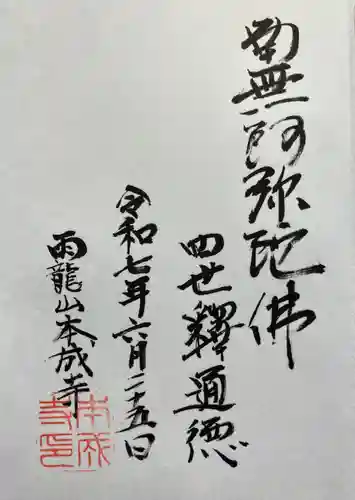 南無阿弥陀佛
四世釋通徳
令和七年六月二十五日
雨龍山本成寺
本成
寺印